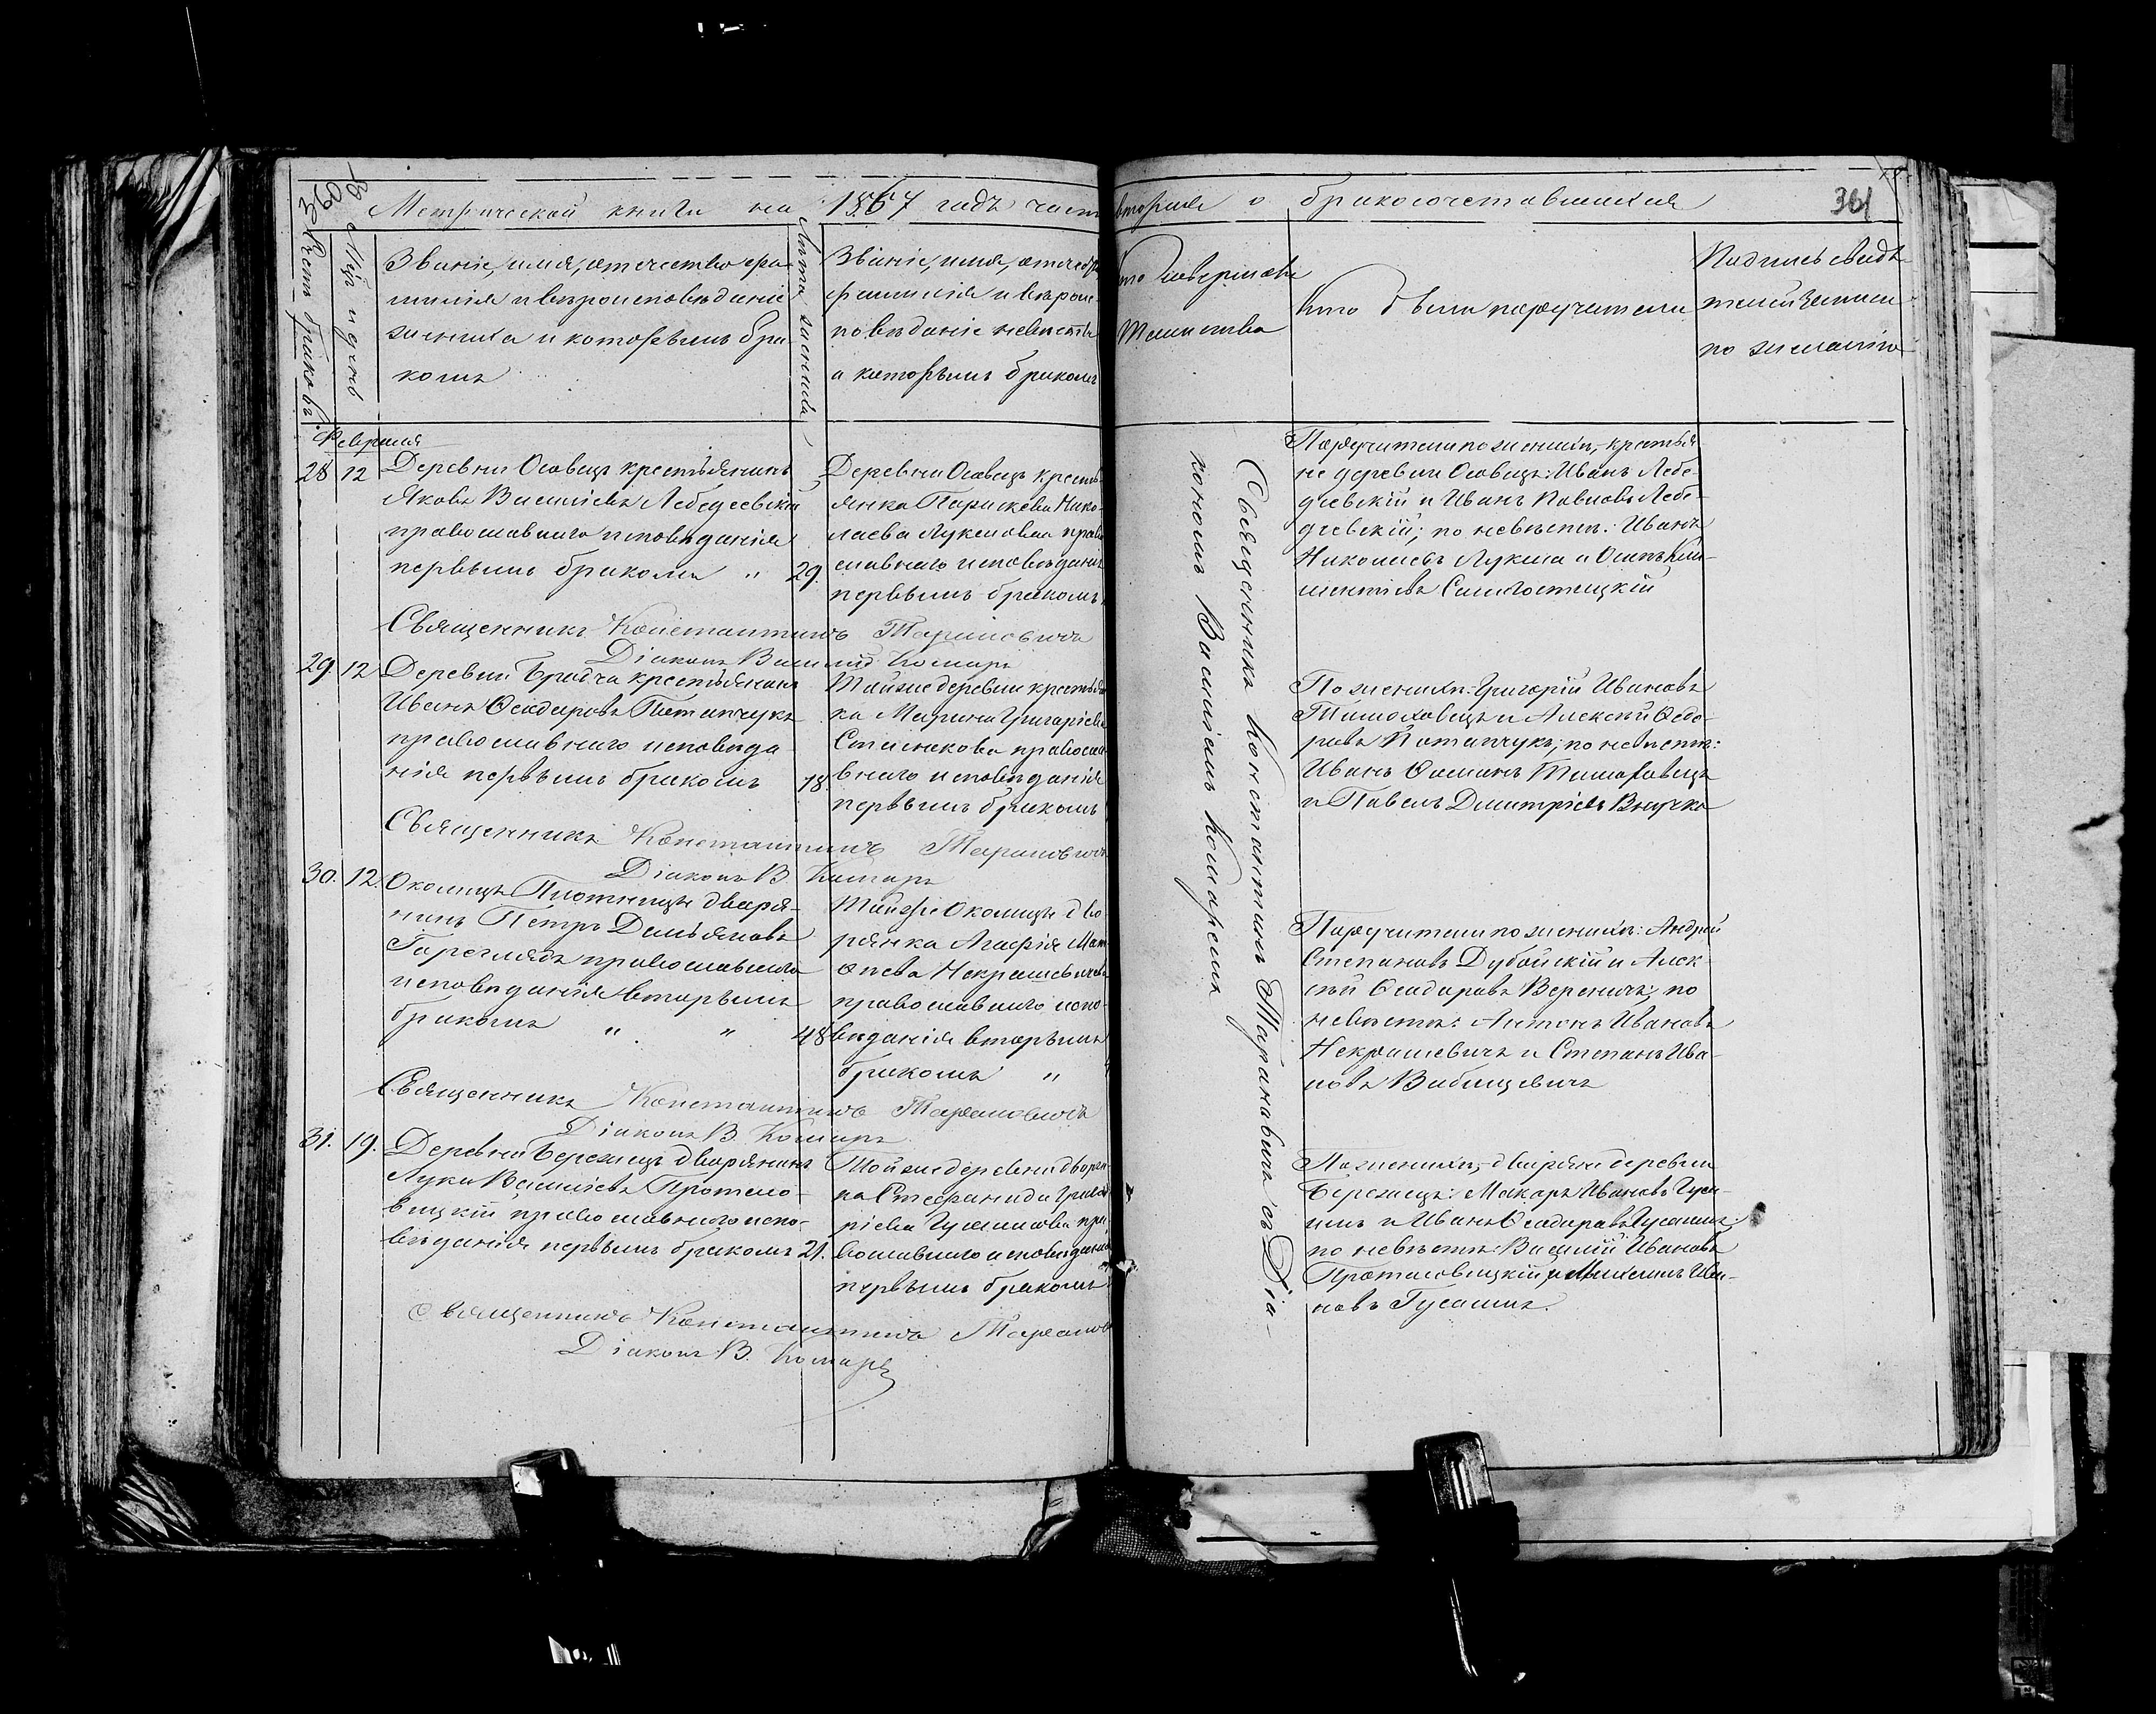 360
361
Метрической книги на 1867 годъ часть вторая о бракосочетавшихся
Счетъ браковъ.
Мѣс. и день
Званіе, имя, отечество фа-
милія и вѣроисповѣданіе
жениха и которымъ бра-
комъ
Лѣта жениха
Званіе, имя, отечество
фамилія и вѣроис-
повѣданіе невѣсты
и которымъ бракомъ
Кто совершалъ
Таинство
Кто были поручители
Подпись свидѣ
телей записи
по желанію
Февраля
28 12 Деревни Осовецъ крестьянинъ
Яковъ Василіевъ Лебедевскій
православнаго исповѣданія
первымъ бракомъ " 29.
Деревни Осовецъ кресть-
янка Параскева Нико-
лаева Луксова право
славнаго исповѣданія
первымъ бракомъ
Поручители по женихѣ, крестья
не деревни Осовецъ: Иванъ Лебе-
девскій и Иванъ Павловъ Лебе-
девскій; по невѣстѣ: Иванъ
Николаевъ Лукша и Осипъ Кли-
ментіевъ
Священникъ Константинъ Тарановичъ
Діаконъ Василій Комаръ
29. 12 Деревни Бродча крестьянинъ
Иванъ Ѳеодоровъ Потапчукъ
православнаго исповѣда
нія первымъ бракомъ 18.
Той же деревни крестьян
ка Марина Григоріева
православ-
внаго исповѣданія
первымъ бракомъ
По женихѣ: Григорій Ивановъ
Тимоховецъ и Алексѣй Ѳедо-
ровъ Потапчукъ; по невѣстѣ:
Иванъ Тимоховецъ
и Павелъ Дмитріевъ Внучко
Священникъ Константинъ Тарановичъ
Діаконъ В. Комаръ
30. 12. Околицы Плотницы дворя-
нинъ Петръ Демьяновъ
Гареглядъ православнаго
исповѣданія вторымъ
бракомъ " " 48
Той же Околицы дво-
рянка Агафія Мат
ѳеева Некрашевичева
православнаго испо-
вѣданія вторымъ
бракомъ "
Поручители по женихѣ: Андрей
Степановъ Дубойскій и Алек-
сѣй Ѳеодоровъ Вереничъ; по
невѣстѣ: Антонъ Ивановъ
Некрашевичъ и Степанъ Ива-
новъ Вабищевичъ
Священникъ Константинъ Тарановичъ
Діаконъ В. Комаръ
31. 19. Деревни Бережецъ дворянинъ
Лука Василіевъ Протасо-
вицкій православнаго испо-
вѣданія первымъ бракомъ 21.
Той же деревни дворян
ка Стефанида Григо
ріева Гусакова пра
вославнаго исповѣданія
первымъ бракомъ
По женихѣ, дворяне деревни
Бережецъ: Макаръ Ивановъ Гуса-
и Иванъ Ѳеодоровъ
по невѣстѣ: Василій Ивановъ
Протасовицкій и Михаилъ Ива-
новъ
Священникъ Константинъ Таранов
Діаконъ В. Комаръ
Священникъ Константинъ Тарановичъ съ Діа-
кономъ Василіемъ Комаремъ